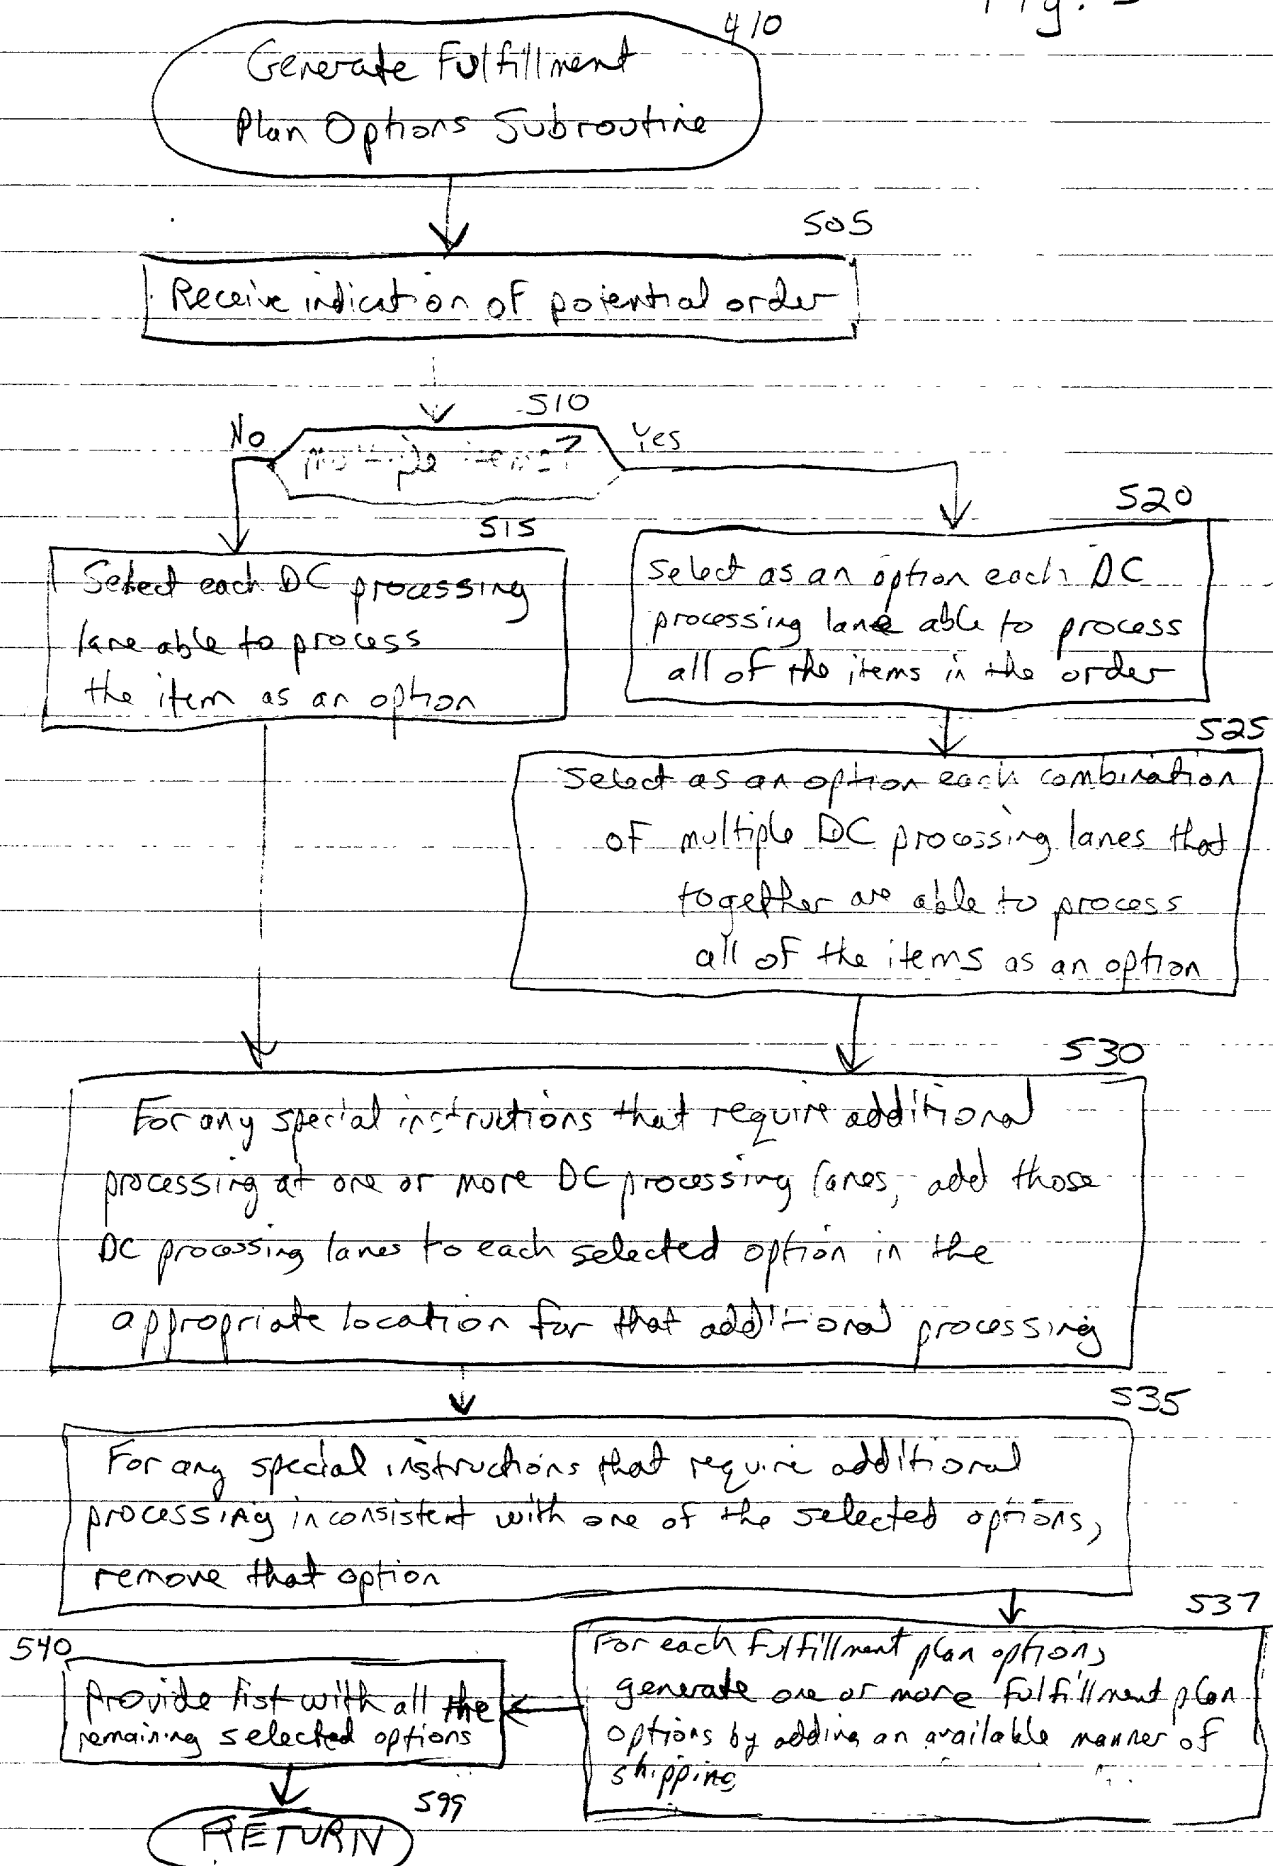 Fig. 5
410
Generate Fulfillment
Plan Options Subroutine
505
Receive indication of potential order
510
No
multiple items?
Yes
515
Select each DC processing
lane able to process
the item as an option
520
Select as an option each DC
processing lane able to process
all of the items in the order
525
Select as an option each combination
of multiple DC processing lanes that
together are able to process
all of the items as an option
530
For any special instructions that require additional
processing at one or more DC processing lanes, add those
DC processing lanes to each selected option in the
appropriate location for that additional processing
535
For any special instructions that require additional
processing inconsistent with one of the selected options,
remove that option
537
For each fulfillment plan options,
generate one or more fulfillment plan
options by adding an available manner of
shipping
540
Provide list with all the
remaining selected options
599
RETURN